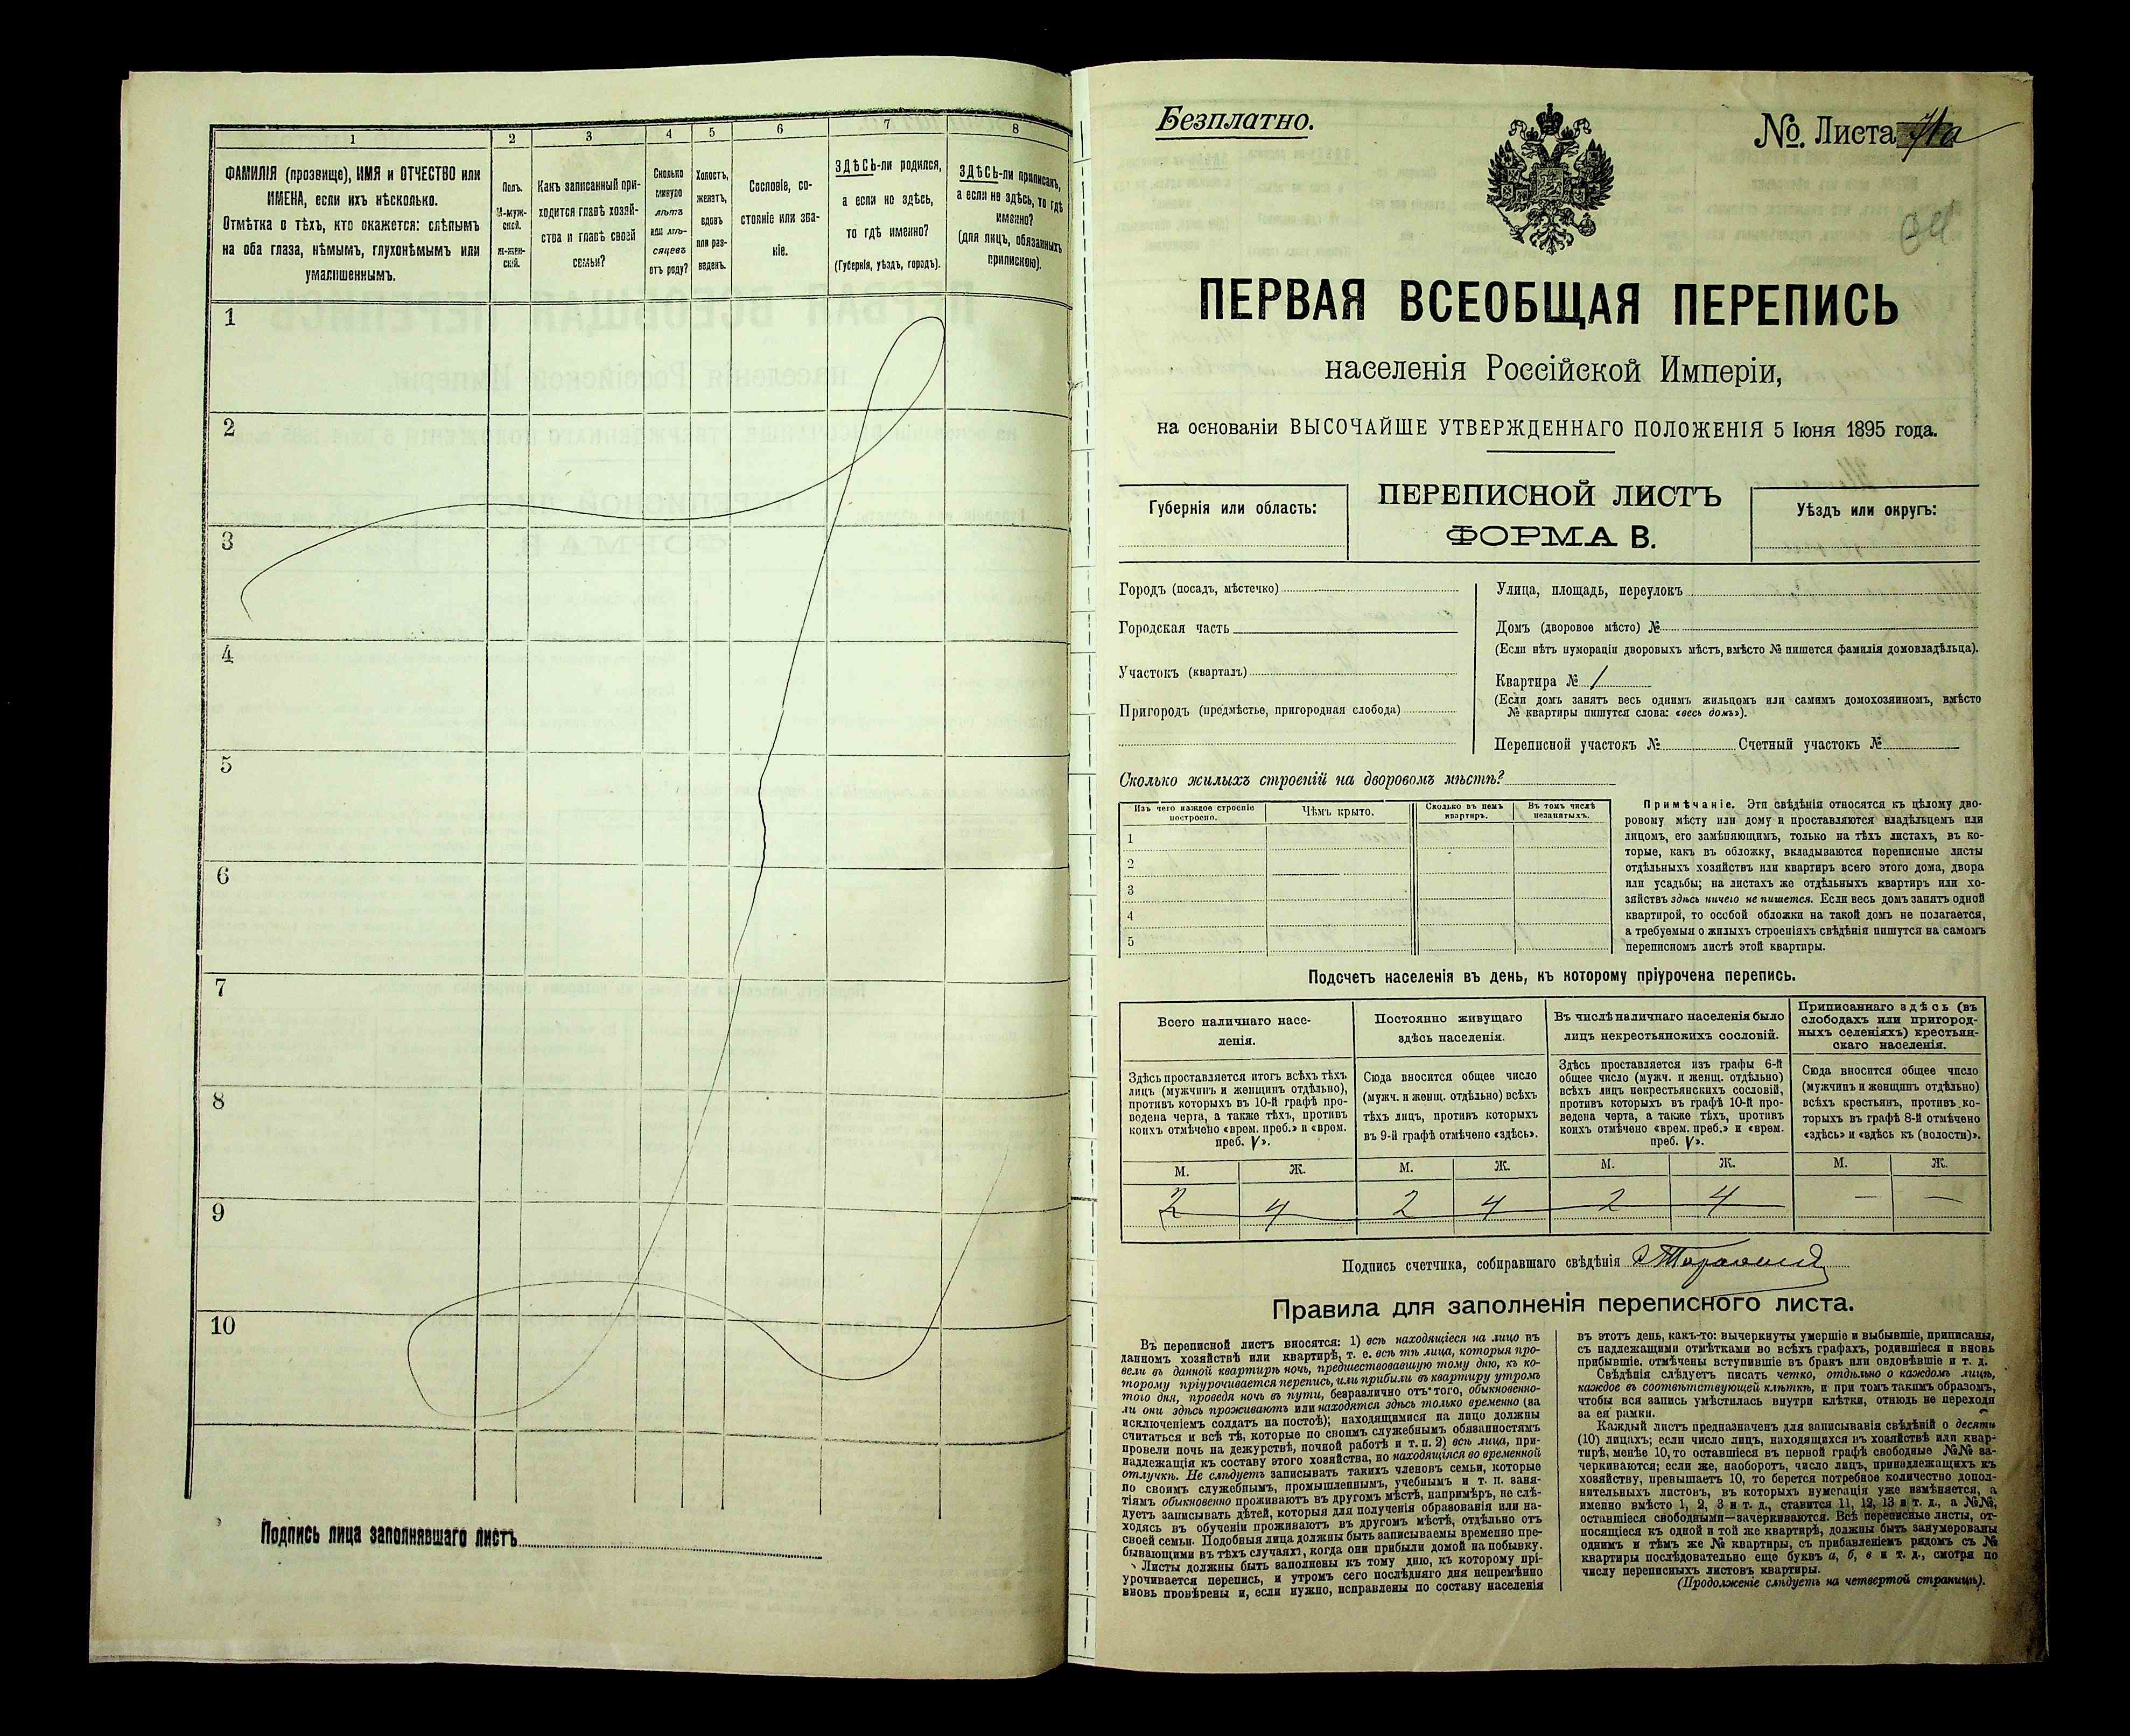 1
2
3
4
5
6
7
8
ФАМИЛІЯ (прозвище), ИМЯ и ОТЧЕСТВО или
ИМЕНА, если ихъ нѣсколько.
Отмѣтка о тѣхъ, кто окажется: слѣпымъ
на оба глаза, нѣмымъ, глухонѣмымъ или
умалишеннымъ.
Полъ.
М-муж-
ской.
ж-жен-
скій.
Какъ записанный при-
ходится главѣ хозяй-
ства и главѣ своей
семьи?
Сколько
минуло
лѣтъ
или мѣ-
сяцевъ
отъ роду?
Холостъ,
женатъ,
вдовъ
или раз-
веденъ.
Сословіе, со-
стояніе или зва-
ніе.
ЗДѢСЬ-ли родился,
а если не здѣсь,
то гдѣ именно?
(Губернія, уѣздъ, городъ).
ЗДѢСЬ-ли приписанъ,
а если не здѣсь, то гдѣ
именно?
(для лицъ, обязанныхъ
припискою).
1
2
3
4
5
6
7
8
9
10
Подпись лица заполнявшаго листъ
Безплатно.
№ Листа
ПЕРВАЯ ВСЕОБЩАЯ ПЕРЕПИСЬ
населенія Россійской Имперіи,
на основаніи ВЫСОЧАЙШЕ УТВЕРЖДЕННАГО ПОЛОЖЕНІЯ 5 Іюня 1895 года.
Губернія или область:
ПЕРЕПИСНОЙ ЛИСТЪ
ФОРМА В.
Уѣздъ или округъ:
Городъ (посадъ, мѣстечко)
Городская часть
Участокъ (кварталъ)
Пригородъ (предмѣстье, пригородная слобода)
Улица, площадь, переулокъ
Домъ (дворовое мѣсто) №
(Если нѣтъ нумораціи дворовыхъ мѣстъ, вмѣсто № пишется фамилія домовладѣльца).
Квартира № 1
(Если домъ занятъ весь однимъ жильцомъ или самимъ домохозяиномъ, вмѣсто
№ квартиры пишутся слова: «весь домъ»).
Переписной участокъ № Счетный участокъ №
Сколько жилыхъ строеній на дворовомъ мѣстѣ?
Изъ чего каждое строеніе
построено.
Чѣмъ крыто.
Сколько въ немъ
квартиръ.
Въ томъ числѣ
незанятыхъ.
1
2
3
4
5
Примѣчаніе. Эти свѣдѣнія относятся къ цѣлому дво-
ровому мѣсту или дому и проставляются владѣльцемъ или
лицомъ, его замѣняющимъ, только на тѣхъ листахъ, въ ко-
торые, какъ въ обложку, вкладываются переписные листы
отдѣльныхъ хозяйствъ или квартиръ всего этого дома, двора
или усадьбы; на листахъ же отдѣльныхъ квартиръ или хо-
зяйствъ здѣсь ничего не пишется. Если весь домъ занятъ одной
квартирой, то особой обложки на такой домъ не полагается,
а требуемыя о жилыхъ строеніяхъ свѣдѣнія пишутся на самомъ
переписномъ листѣ этой квартиры.
Подсчетъ населенія въ день, къ которому пріурочена перепись.
Всего наличнаго насе-
ленія.
Здѣсь проставляется итогъ всѣхъ тѣхъ
лицъ (мужчинъ и женщинъ отдѣльно),
противъ которыхъ въ 10-й графѣ про-
ведена черта, а также тѣхъ, противъ
коихъ отмѣчено «врем. преб.» и «врем.
преб. V».
Постоянно живущаго
здѣсь населенія.
Сюда вносится общее число
(мужч. и женщ. отдѣльно) всѣхъ
тѣхъ лицъ, противъ которыхъ
въ 9-й графѣ отмѣчено «здѣсь».
Въ числѣ наличнаго населенія было
лицъ некрестьянскихъ сословій.
Здѣсь проставляется изъ графы 6-й
общее число (мужч. и женщ. отдѣльно)
всѣхъ лицъ некрестьянскихъ сословій,
противъ которыхъ въ графѣ 10-й про-
ведена черта, а также тѣхъ, противъ
коихъ отмѣчено «врем. преб.» и «врем.
преб. V».
Приписаннаго здѣсь (въ
слободахъ или пригород-
ныхъ селеніяхъ) крестьян-
скаго населенія.
Сюда вносится общее число
(мужчинъ и женщинъ отдѣльно)
всѣхъ крестьянъ, противъ ко-
торыхъ въ графѣ 8-й отмѣчено
«здѣсь» и «здѣсь къ (волости)».
М. Ж. М. Ж. М. Ж. М. Ж.
2 4 2 4 2 4 — —
Подпись счетчика, собиравшаго свѣдѣнія
Правила для заполненія переписного листа.
Въ переписной листъ вносятся: 1) всѣ находящіеся на лицо въ
данномъ хозяйствѣ или квартирѣ, т. е. всѣ тѣ лица, которыя про-
вели въ данной квартирѣ ночь, предшествовавшую тому дню, къ ко-
торому пріурочивается перепись, или прибыли въ квартиру утромъ
того дня, проведя ночь въ пути, безразлично отъ того, обыкновенно-
ли они здѣсь проживаютъ или находятся здѣсь только временно (за
исключеніемъ солдатъ на постоѣ); находящимися на лицо должны
считаться и всѣ тѣ, которые по своимъ служебнымъ обязанностямъ
провели ночь на дежурствѣ, ночной работѣ и т. п. 2) всѣ лица, при-
надлежащія къ составу этого хозяйства, но находящіяся во временной
отлучкѣ. Не слѣдуетъ записывать такихъ членовъ семьи, которые
по своимъ служебнымъ, промышленнымъ, учебнымъ и т. п. заня-
тіямъ обыкновенно проживаютъ въ другомъ мѣстѣ, напримѣръ, не слѣ-
дуетъ записывать дѣтей, которыя для полученія образованія или на-
ходясь въ обученіи проживаютъ въ другомъ мѣстѣ, отдѣльно отъ
своей семьи. Подобныя лица должны быть записываемы временно пре-
бывающими въ тѣхъ случаяхъ, когда они прибыли домой на побывку.
Листы должны быть заполнены къ тому дню, къ которому прі-
урочивается перепись, и утромъ сего послѣдняго дня непремѣнно
вновь провѣрены и, если нужно, исправлены по составу населенія
въ этотъ день, какъ-то: вычеркнуты умершіе и выбывшіе, приписаны,
съ надлежащими отмѣтками во всѣхъ графахъ, родившіеся и вновь
прибывшіе, отмѣчены вступившіе въ бракъ или овдовѣвшіе и т. д.
Свѣдѣнія слѣдуетъ писать четко, отдѣльно о каждомъ лицѣ,
каждое въ соотвѣтствующей клѣткѣ, и при томъ такимъ образомъ,
чтобы вся запись умѣстилась внутри клѣтки, отнюдь не переходя
за ея рамки.
Каждый листъ предназначенъ для записыванія свѣдѣній о десяти
(10) лицахъ; если число лицъ, находящихся въ хозяйствѣ или квар-
тирѣ, менѣе 10, то оставшіеся въ первой графѣ свободные №№ за-
черкиваются; если же, наоборотъ, число лицъ, принадлежащихъ къ
хозяйству, превышаетъ 10, то берется потребное количество допол-
нительныхъ листовъ, въ которыхъ нумерація уже измѣняется, а
именно вмѣсто 1, 2, 3 и т. д., ставится 11, 12, 13 и т. д., а №№,
оставшіеся свободными—зачеркиваются. Всѣ переписные листы, от-
носящіеся къ одной и той же квартирѣ, должны быть занумерованы
однимъ и тѣмъ же № квартиры, съ прибавленіемъ рядомъ съ №
квартиры послѣдовательно еще буквъ а, б, в и т. д., смотря по
числу переписныхъ листовъ квартиры.
(Продолженіе слѣдуетъ на четвертой страницѣ).